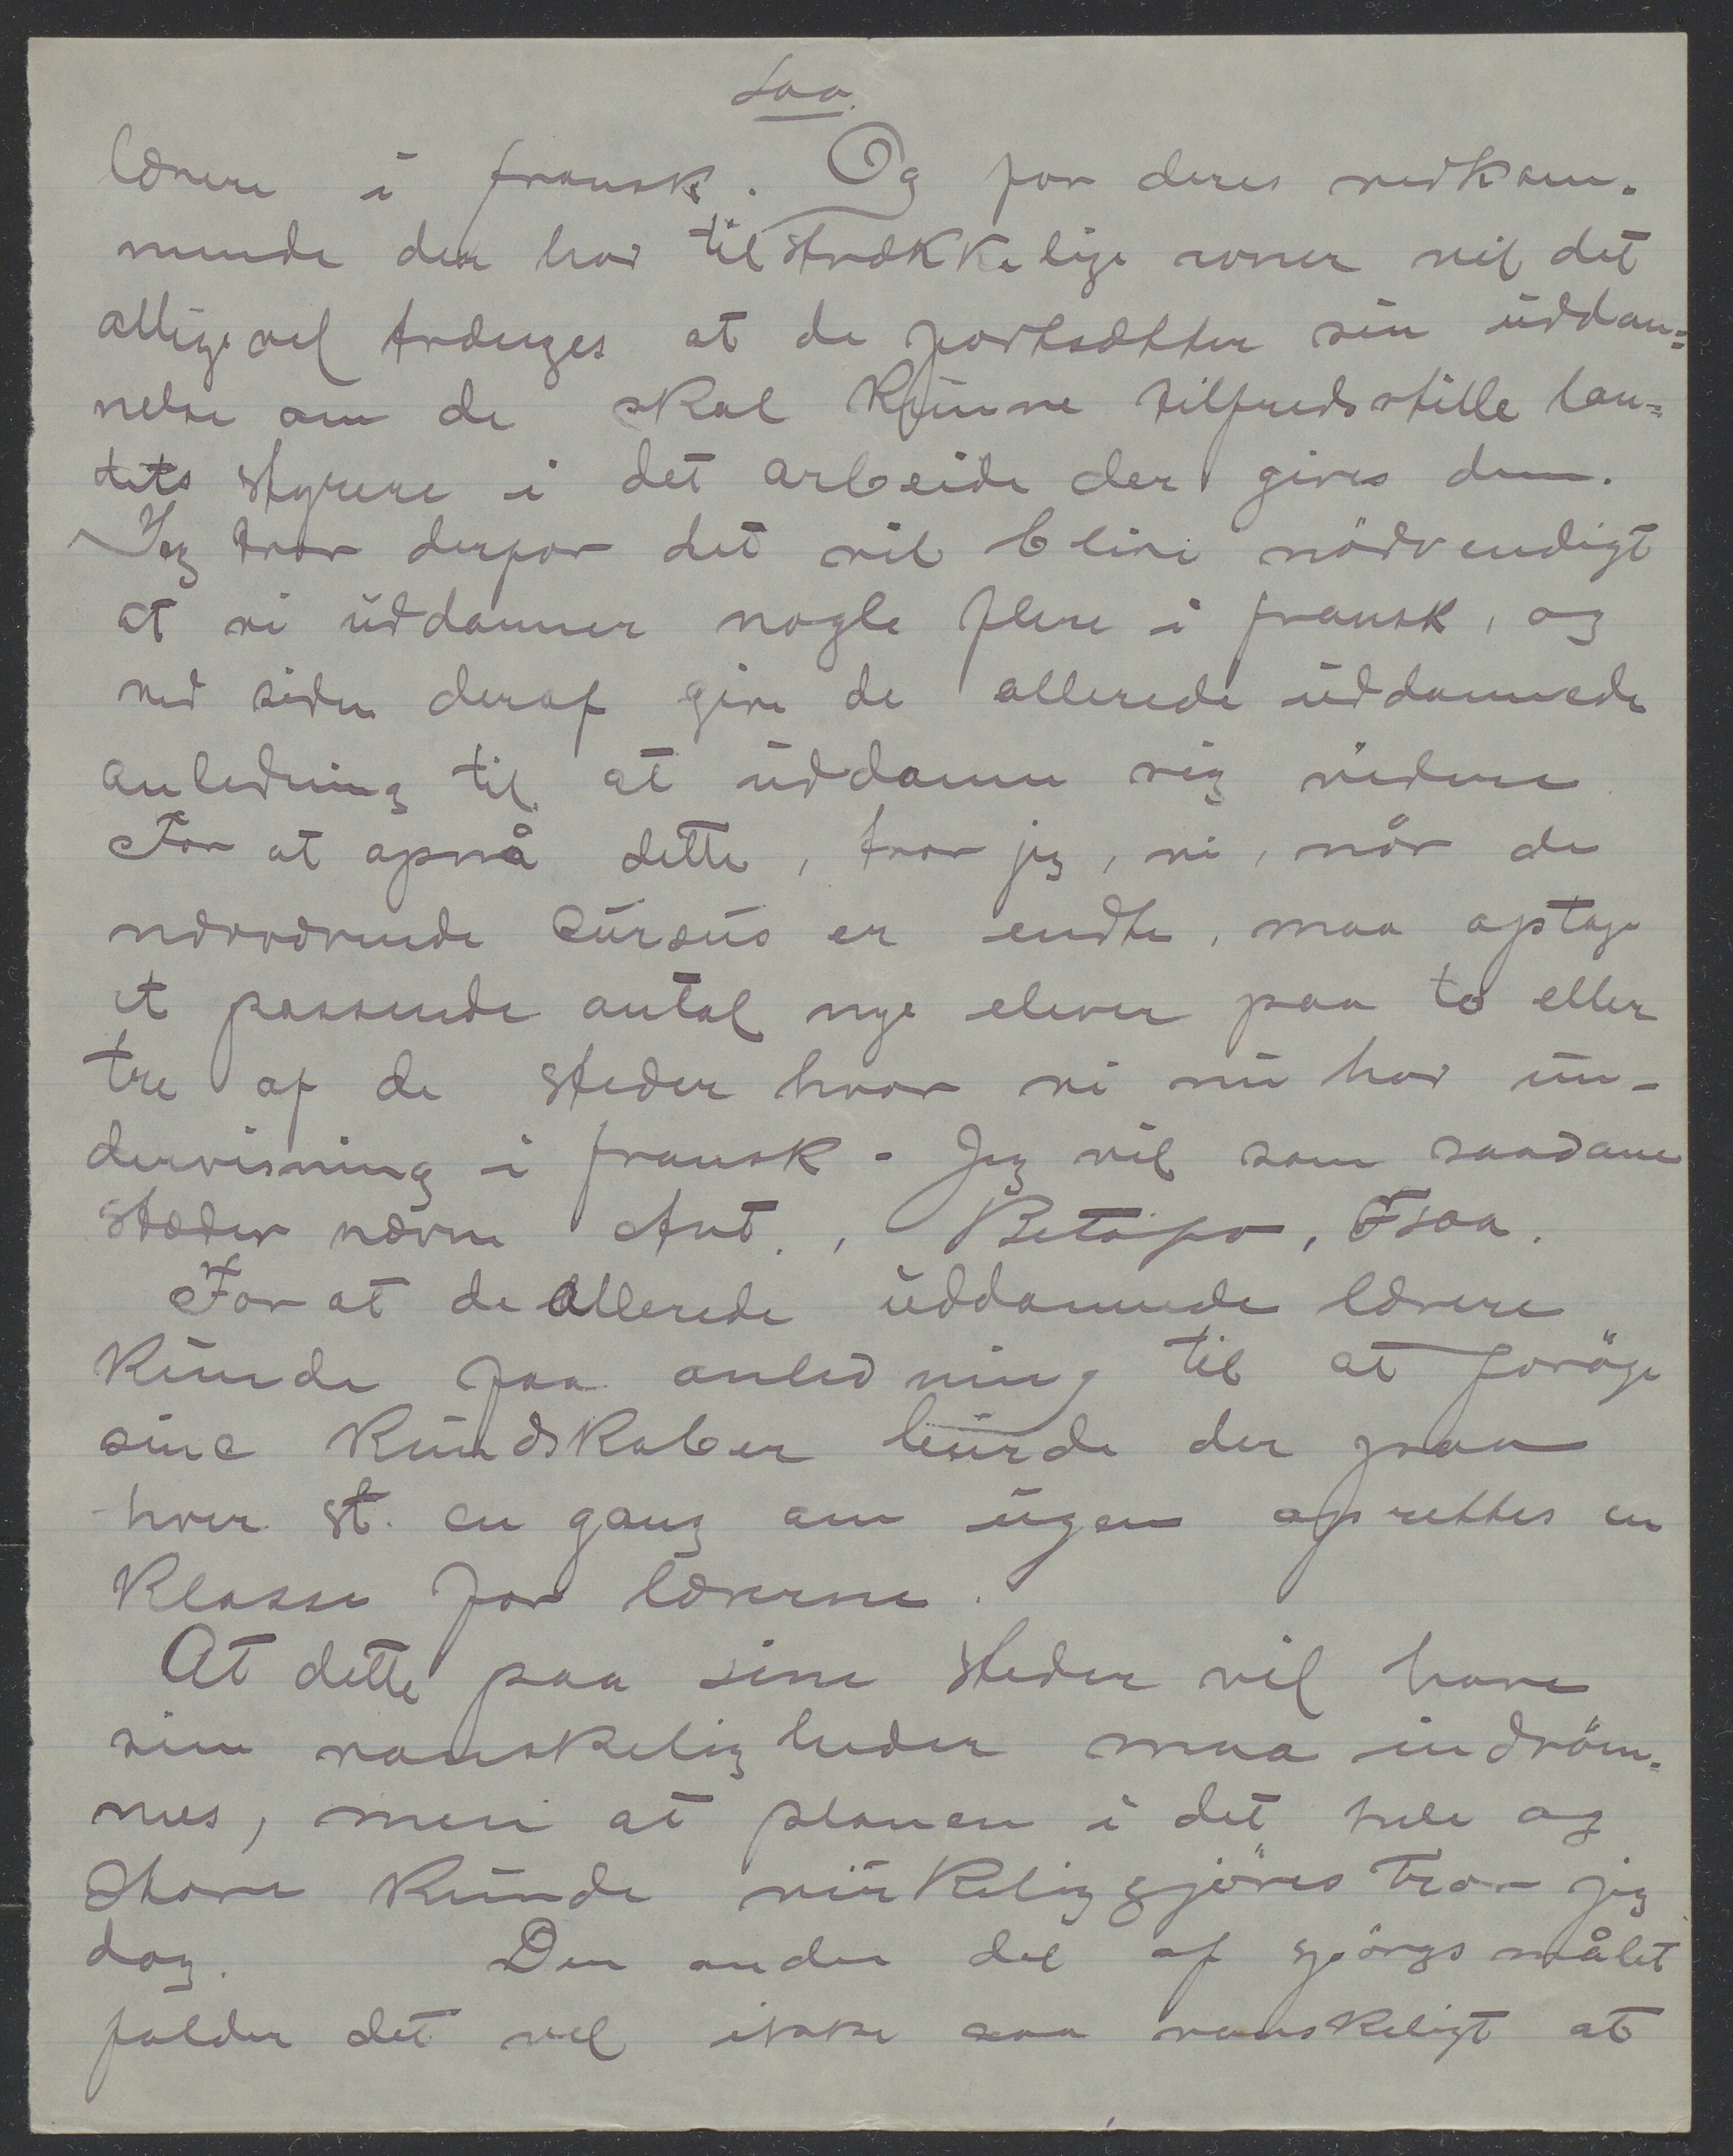 lærere i fransk. Og for deres vedkom-
mende der har tilstrækkelige evner vil det
alligevel trænges at de fortsætter sin uddan=
nelse om de skal kunne tilfredsstille lan=
dets styrere i det arbeide der gives dem.
Jeg tror derfor det vil blive nödvendigt
at vi uddanner nogle flere i fransk, og
ved siden deraf give de allerede uddannede
anledning til at uddanne sig videre
For at opnå dette, tror jeg, vi, når de
nærværende Cursus er endte, maa optage
et passende antal nye elever paa to eller
tre af de steder hvor vi nu har un-
dervisning i fransk - Jeg vil som saadane
stæder nævne Ant., Betafo, Fsoa.
For at de allerede uddannede lærere
kunde faa anledning til at foröge
sine Kundskaber burde der paa
hver st. en gang om ugen oprettes en
Klasse for lærerne.
At dette paa sine steder vil have
sine vanskeligheder maa indröm-
mes, men at planen i det hele og
store kunde virkeliggjöres tror jeg
dog. Den anden del af spörgsmålet
falder det vel ikke saa vanskeligt at